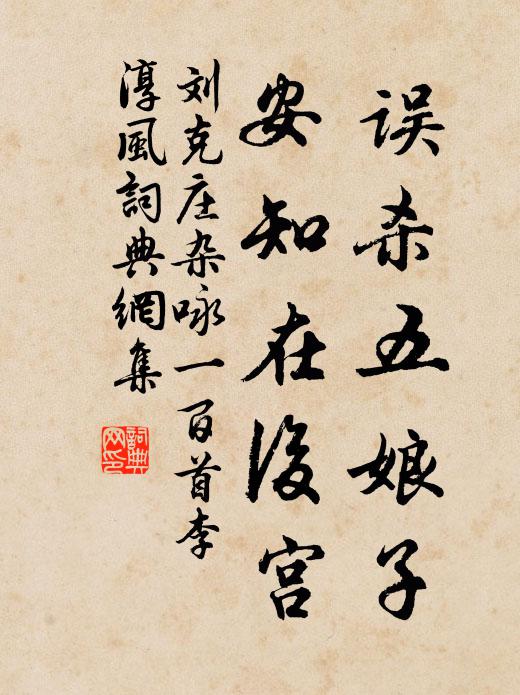 误杀五娘子
安知在后宫
刘克庄杂咏一百首李
淳风詞典網集
詞典
网印